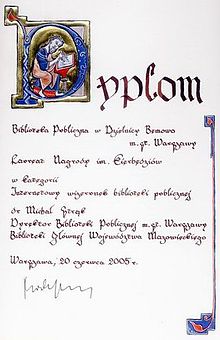 Dyplom
Biblioteka Publiczna w Dzielnicy Bemowo
m.st. Warszawy
Laureat Nagrody im. Kierbedziów
w kategorii
Internetowy wizerunek biblioteki publicznej
dr Michał Strąk
Dyrektor Biblioteki Publicznej m.st. Warszawy
Biblioteki Głównej Województwa Mazowieckiego
Warszawa, 20 czerwca 2005 r.